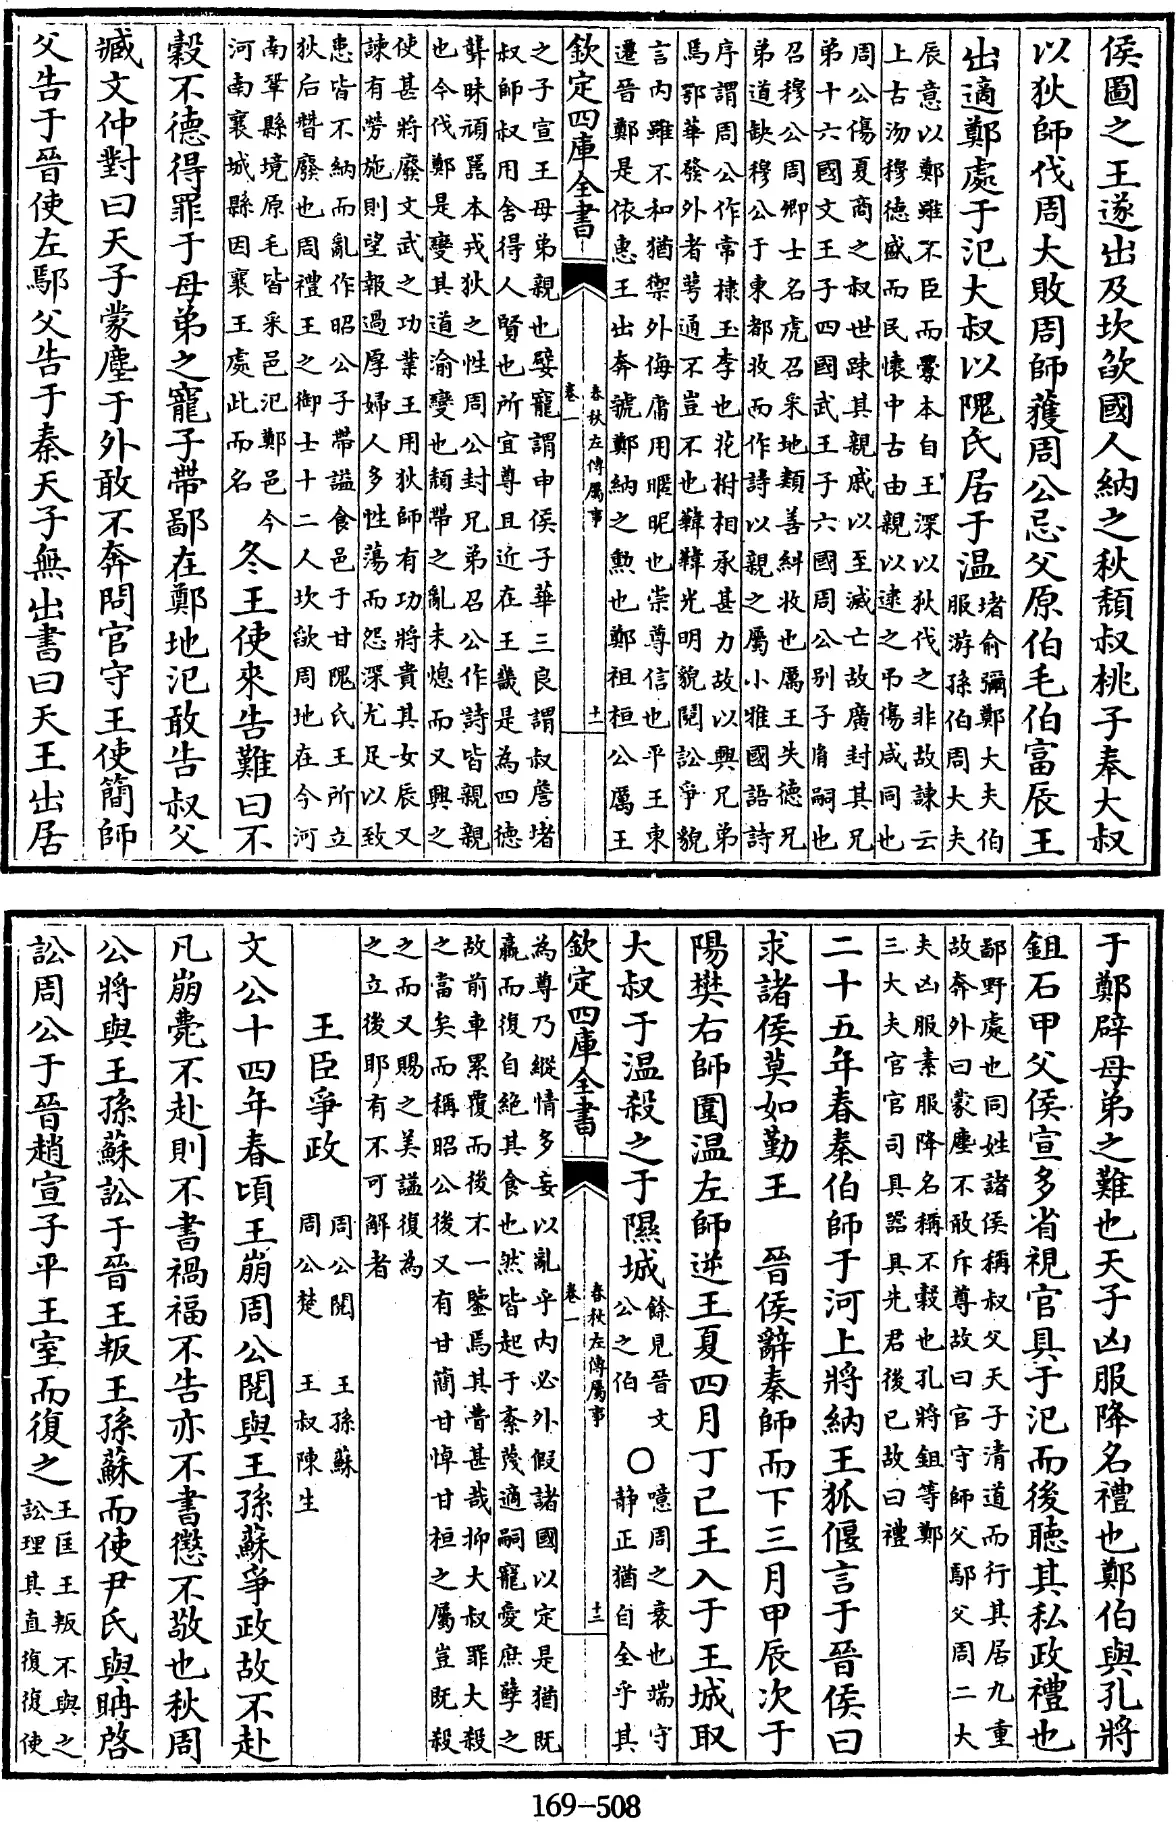 侯圖之王遂出及坎欿國人納之秋頹叔桃子奉大叔
以狄師伐周大敗周師獲周公忌父原伯毛伯富辰王
出適鄭處于氾大叔以隗氏居于溫堵俞彌鄭大夫伯
服游孫伯周大夫
辰意以鄭雖不臣而釁本自王深以狄伐之非故諫云
上古沕穆德盛而民懷中古由親以逮之弔傷咸同也
周公傷夏商之叔世疎其親戚以至滅亡故廣封其兄
弟十六國文王子四國武王子六國周公别子胤嗣也
召穆公周卿士名虎召采地類善糾收也厲王失德兄
弟道缺穆公于東都收而作詩以親之屬小雅國語詩
序謂周公作常棣玉李也花柎相承甚力故以興兄弟
馬鄂華發外者萼通不豈不也韡韡光明貌鬩訟爭貌
言内雖不和猶禦外侮庸用暱昵也崇尊信也平王東
遷晉鄭是依惠王出奔虢鄭納之勲也鄭祖桓公厲王
欽定四庫全書
春秋左傳屬事
卷一
十一
之子宣王母弟親也嬖寵謂申侯子華三良謂叔詹堵
叔師叔用舍得人賢也所宜尊且近在王畿是為四德
聾昧頑嚚本戎狄之性周公封兄弟召公作詩皆親親
也今伐鄭是變其道渝變也頹帶之亂未熄而又興之
使甚將廢文武之功業王用狄師有功將貴其女辰又
諫有勞施則望報過厚婦人多性蕩而怨深尤足以致
患皆不納而亂作昭公子帶謚食邑于甘隗氏王所立
狄后替廢也周禮王之御士十二人坎欿周地在今河
南鞏縣境原毛皆采邑氾鄭邑今
河南襄城縣因襄王處此而名冬王使來告難曰不
穀不德得罪于母弟之寵子帶鄙在鄭地氾敢告叔父
臧文仲對曰天子蒙塵于外敢不奔問官守王使簡師
父告于晉使左鄢父告于秦天子無出書曰天王出居
于鄭辟母弟之難也天子凶服降名禮也鄭伯與孔將
鉏石甲父侯宣多省視官具于氾而後聽其私政禮也
鄙野處也同姓諸侯稱叔父天子清道而行其居九重
故奔外曰蒙塵不敢斥尊故曰官守師父鄢父周二大
夫凶服素服降名稱不穀也孔將鉏等鄭
三大夫官官司具器具先君後已故曰禮
二十五年春秦伯師于河上將納王狐偃言于晉侯曰
求諸侯莫如勤王 晉侯辭秦師而下三月甲辰次于
陽樊右師圍溫左師逆王夏四月丁已王入于王城取
大叔于溫殺之于隰城餘見晉文
公之伯〇噫周之衰也端守
静正猶自全乎其
欽定四庫全書
春秋左傳屬事
卷一
十二
為尊乃縱情多妄以亂乎内必外假諸國以定是猶既
羸而復自絶其食也然皆起于紊蔑適嗣寵愛庶孽之
故前車累覆而後才一鑒焉其昔甚哉抑大叔罪大殺
之當矣而稱昭公後又有甘簡甘悼甘桓之屬豈既殺
之而又賜之美謚復為
之立後耶有不可解者
王臣爭政 周公閱 王孫蘇
周公楚 王叔陳生
文公十四年春頃王崩周公閱與王孫蘇爭政故不赴
凡崩薨不赴則不書禍福不告亦不書懲不敬也秋周
公將與王孫蘇訟于晉王叛王孫蘇而使尹氏與聃啓
訟周公于晉趙宣子平王室而復之王匡王叛不與之
訟理其直復復使
169-508